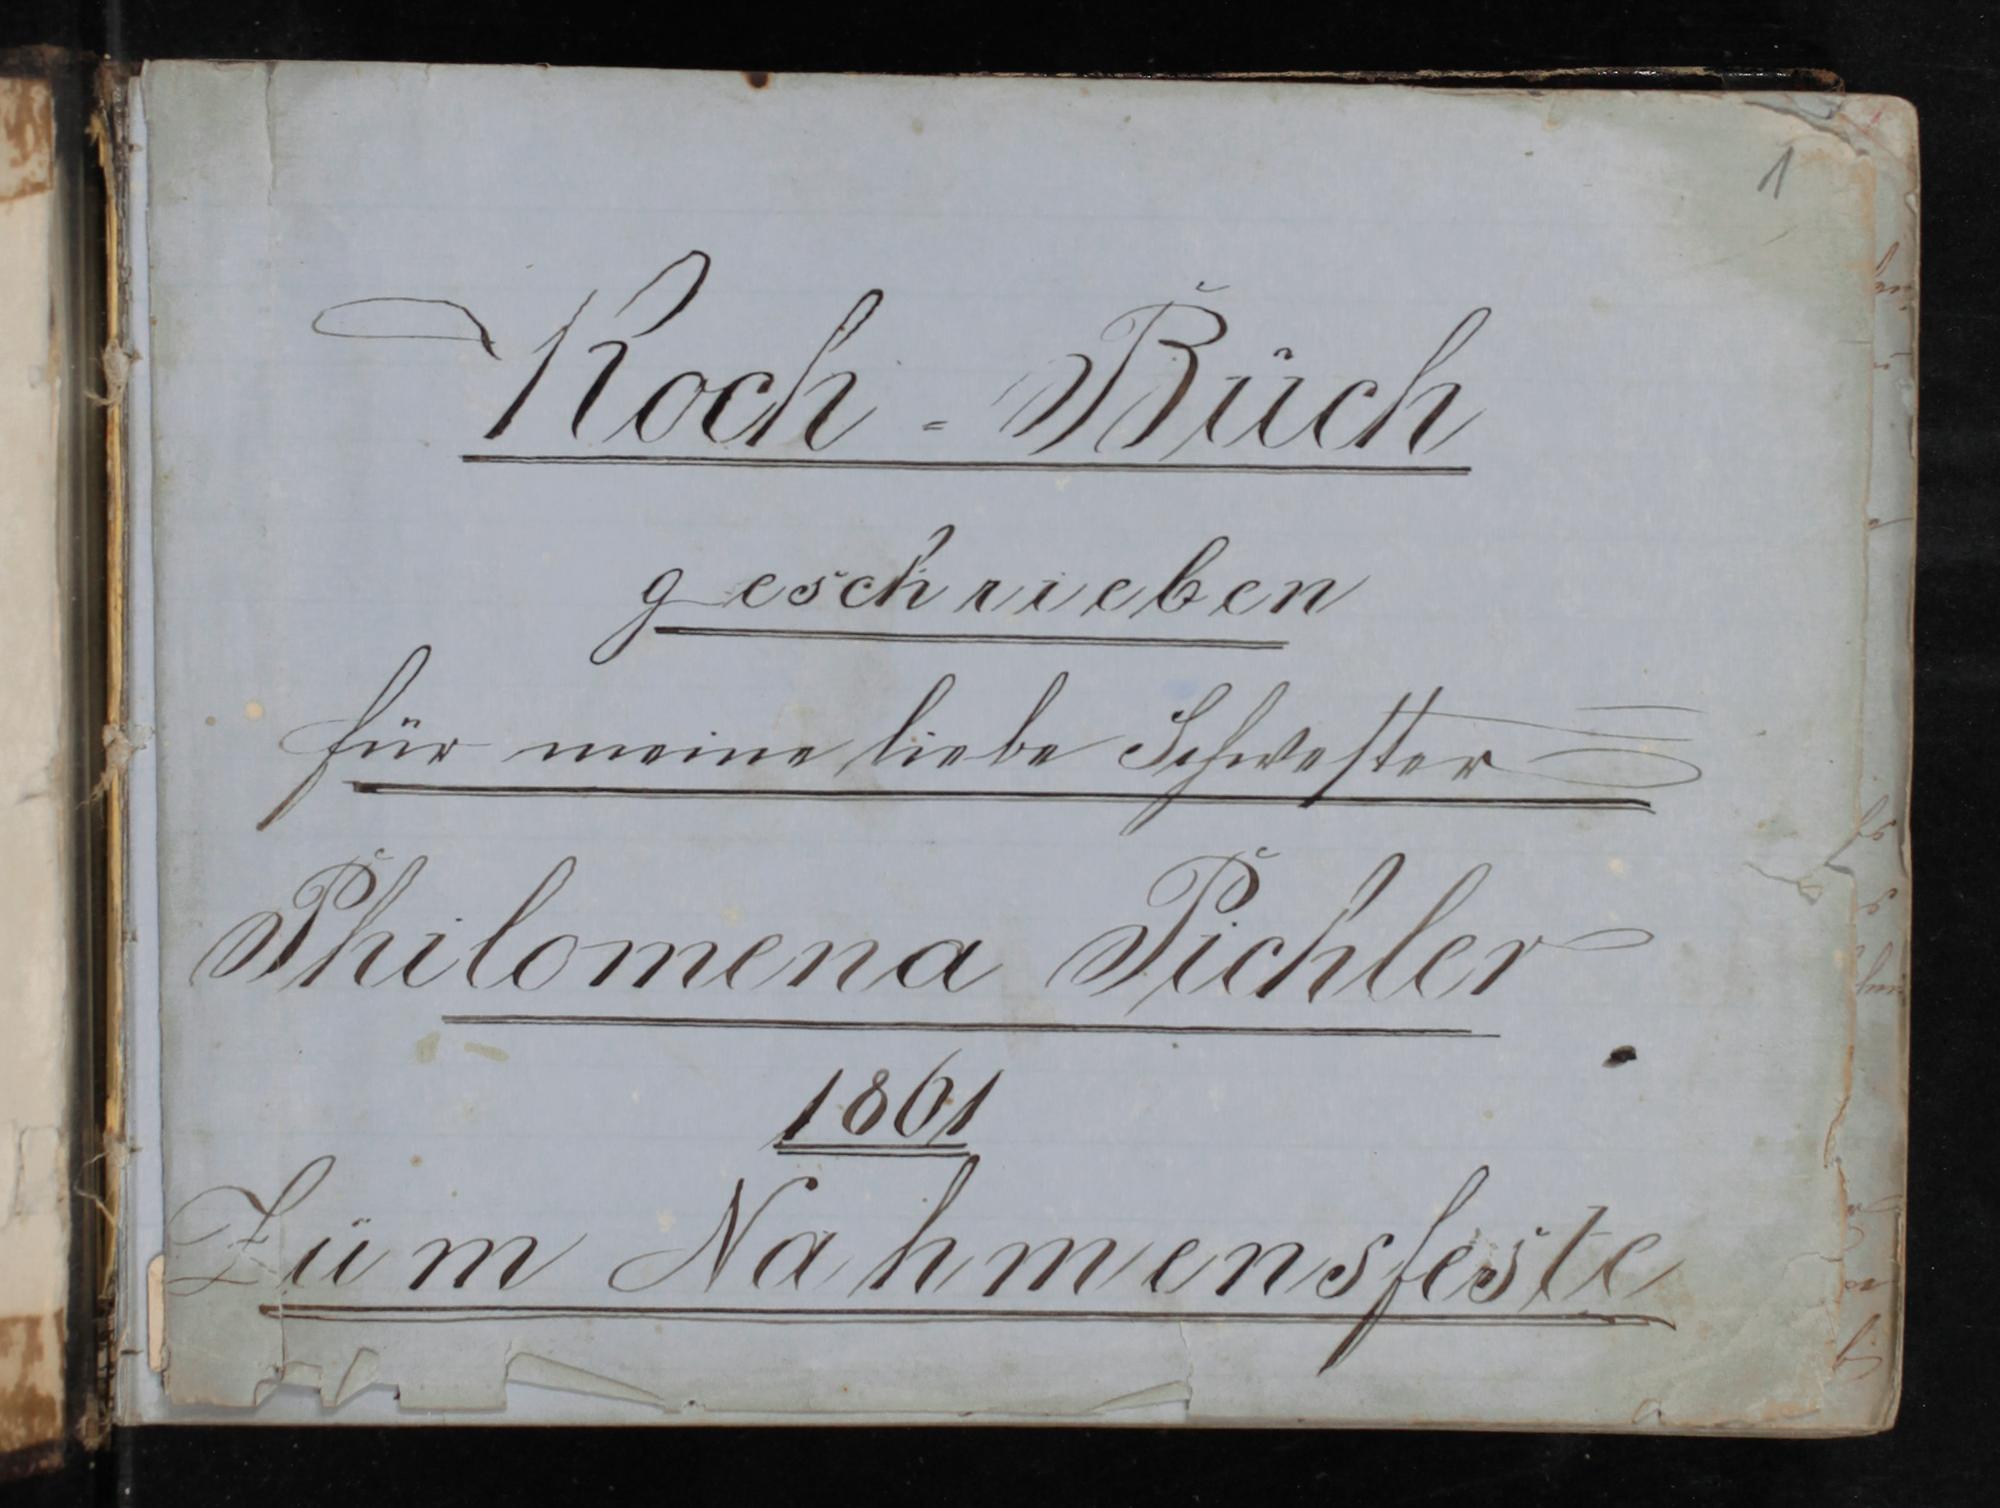 1
Koch = Büch
geschrieben
für meine liebe Schwester
Philomena Pichler
1861
Züm Nahmensfeste